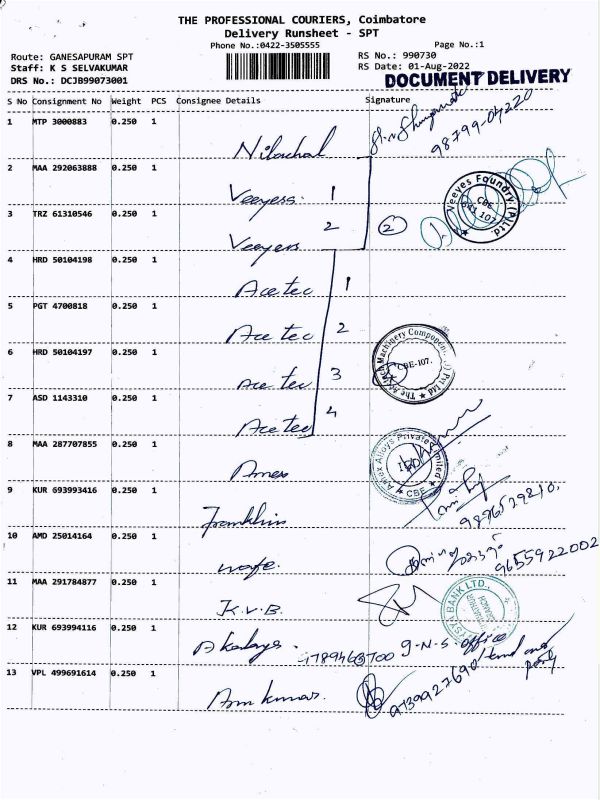 THE PROFESSIONAL COURIERS, Coimbatore
Delivery Runsheet - SPT
Phone No.:0422-3505555 Page No.:1
Route: GANESAPURAM SPT RS No.: 990730
Staff: K S SELVAKUMAR RS Date: 01-Aug-2022
DRS No.: DCJB99073001 DOCUMENT DELIVERY
S No Consignment No Weight PCS Consignee Details Signature
1 MTP 3000883 0.250 1
Nilachal
2 MAA 292063888 0.250 1
Veeyess 1
Veeyes Foundry (P) Ltd.
CBE
641 107
3 TRZ 61310546 0.250 1
Veeyers 2 2
4 HRD 50104198 0.250 1
Ace tec 1
5 PGT 4700818 0.250 1
Ace tec 2
6 HRD 50104197 0.250 1
Ace tec 3
CBE-107.
7 ASD 1143310 0.250 1
Ace tec 4
8 MAA 287707855 0.250 1
Amex
Amex Alloys Private Limited
CBE
9 KUR 693993416 0.250 1
Franklin
9876529210.
10 AMD 25014164 0.250 1
9655922002
11 MAA 291784877 0.250 1
K.V.B.
12 KUR 693994116 0.250 1
G.N.S. office
13 VPL 499691614 0.250 1
Arun kumar.